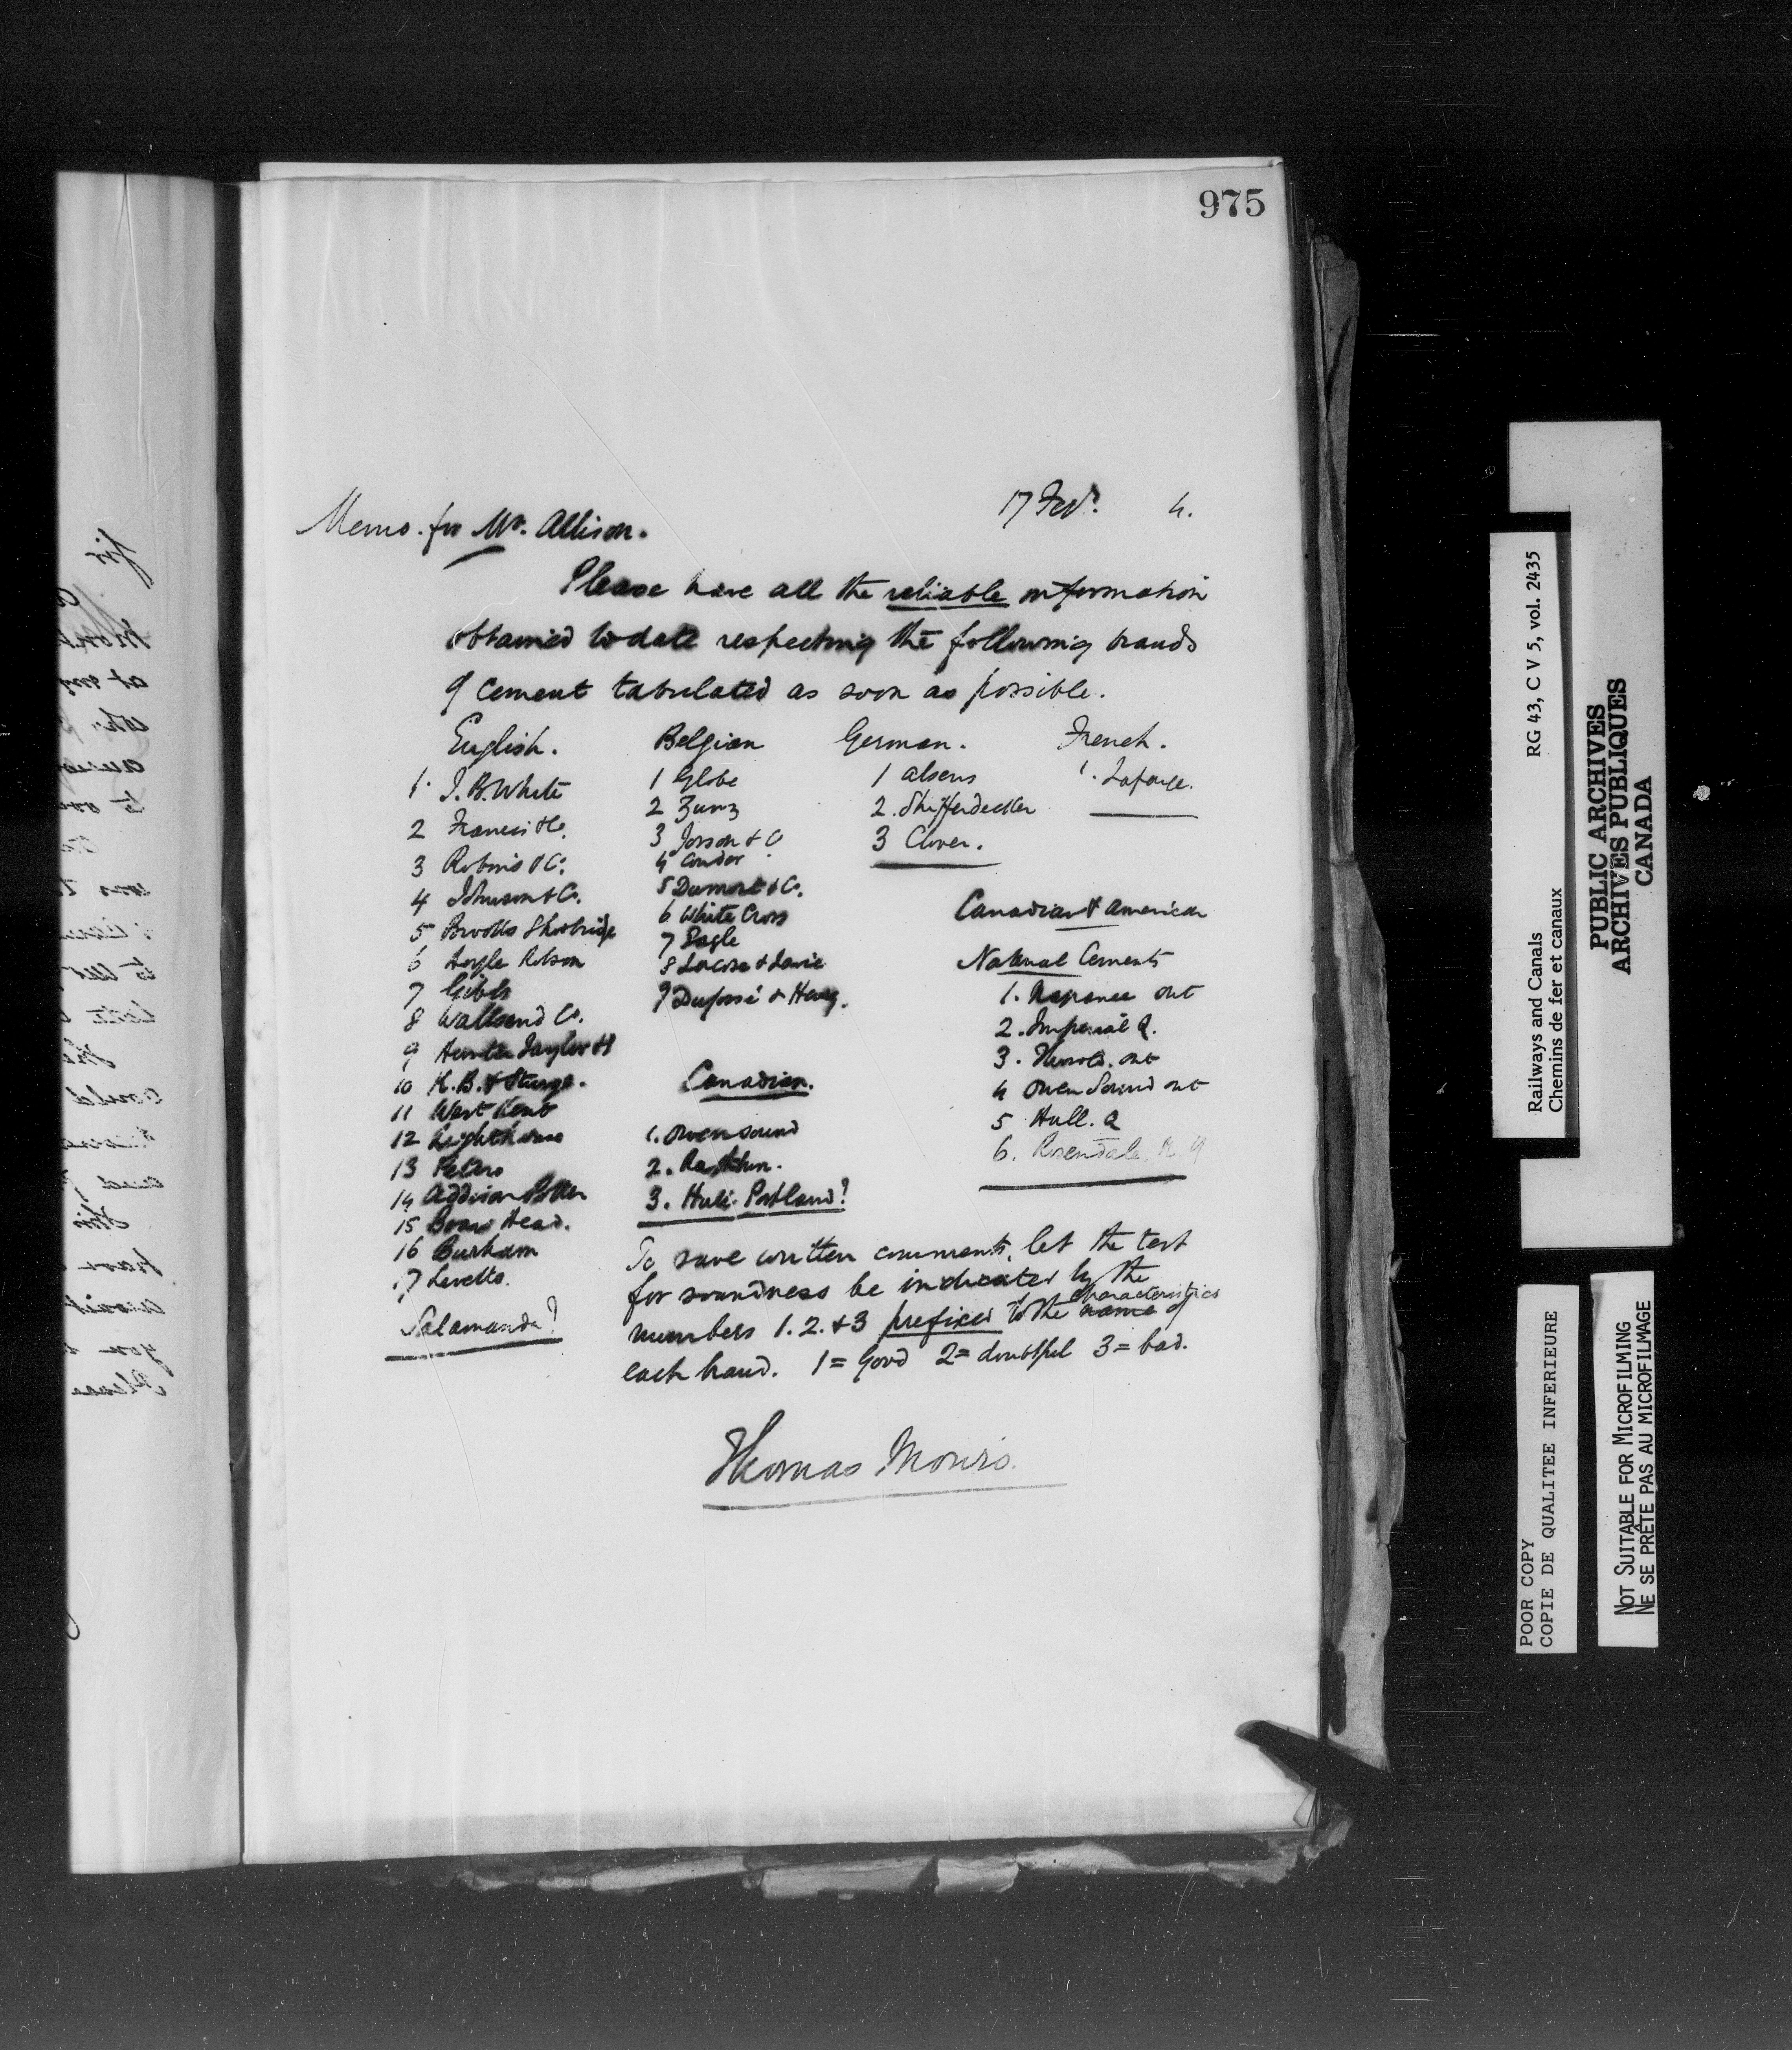 975
17 Feby. 4.
Memo. for Mr. Allison.
Please have all the reliable information
obtained to date respecting the following brands
of cement tabulated as soon as possible.
English.
1. J. B. White
2 Francis & Co.
3 Robins & Co.
4 Johnson & Co.
5 Brooks Shoobridge
6 Argyle Robson
7 Gibbs
8 Wallsend Co.
9 Hunter Taylor
10 K. B. & Sturge.
11 West Kent
12 Lighthouse
13 Peters
14 Addison Potter
15 Boars Head.
16 Burham
17 Levetts.
Salamander?
Belgian
1 Globe
2
3 Josson & Co
4 Condor
5 Dumont & Co.
6 White Cross
7 Eagle
8
9 Dufossé & Henry.
Canadian.
1. Owen sound
2. Rathbun.
3. Hull. Portland?
German.
1 Alsens
2. Shifferdecker
3 Clover.
French.
1. Lafarge.
Canadian & American
Natural Cements
1. Napanee Ont
2. Imperial Q.
3. Thorold. Ont
4 Owen Sound Ont
5 Hull. Q
6. Rosendale. N. Y
To save written comments, let the test
for soundness be indicated by the
characteristics
numbers 1. 2. & 3 prefixed to the name of
each brand. 1 = Good 2 = doubtful 3 = bad.
Thomas Monro.
Railways and Canals
Chemins de fer et canaux
RG 43, C V 5, vol. 2435
PUBLIC ARCHIVES
ARCHIVES PUBLIQUES
CANADA
POOR COPY
COPIE DE QUALITEE INFERIEURE
NOT SUITABLE FOR MICROFILMING
NE SE PRÊTE PAS AU MICROFILMAGE